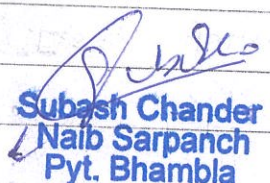 Subash Chander
Naib Sarpanch
Pyt. Bhambla